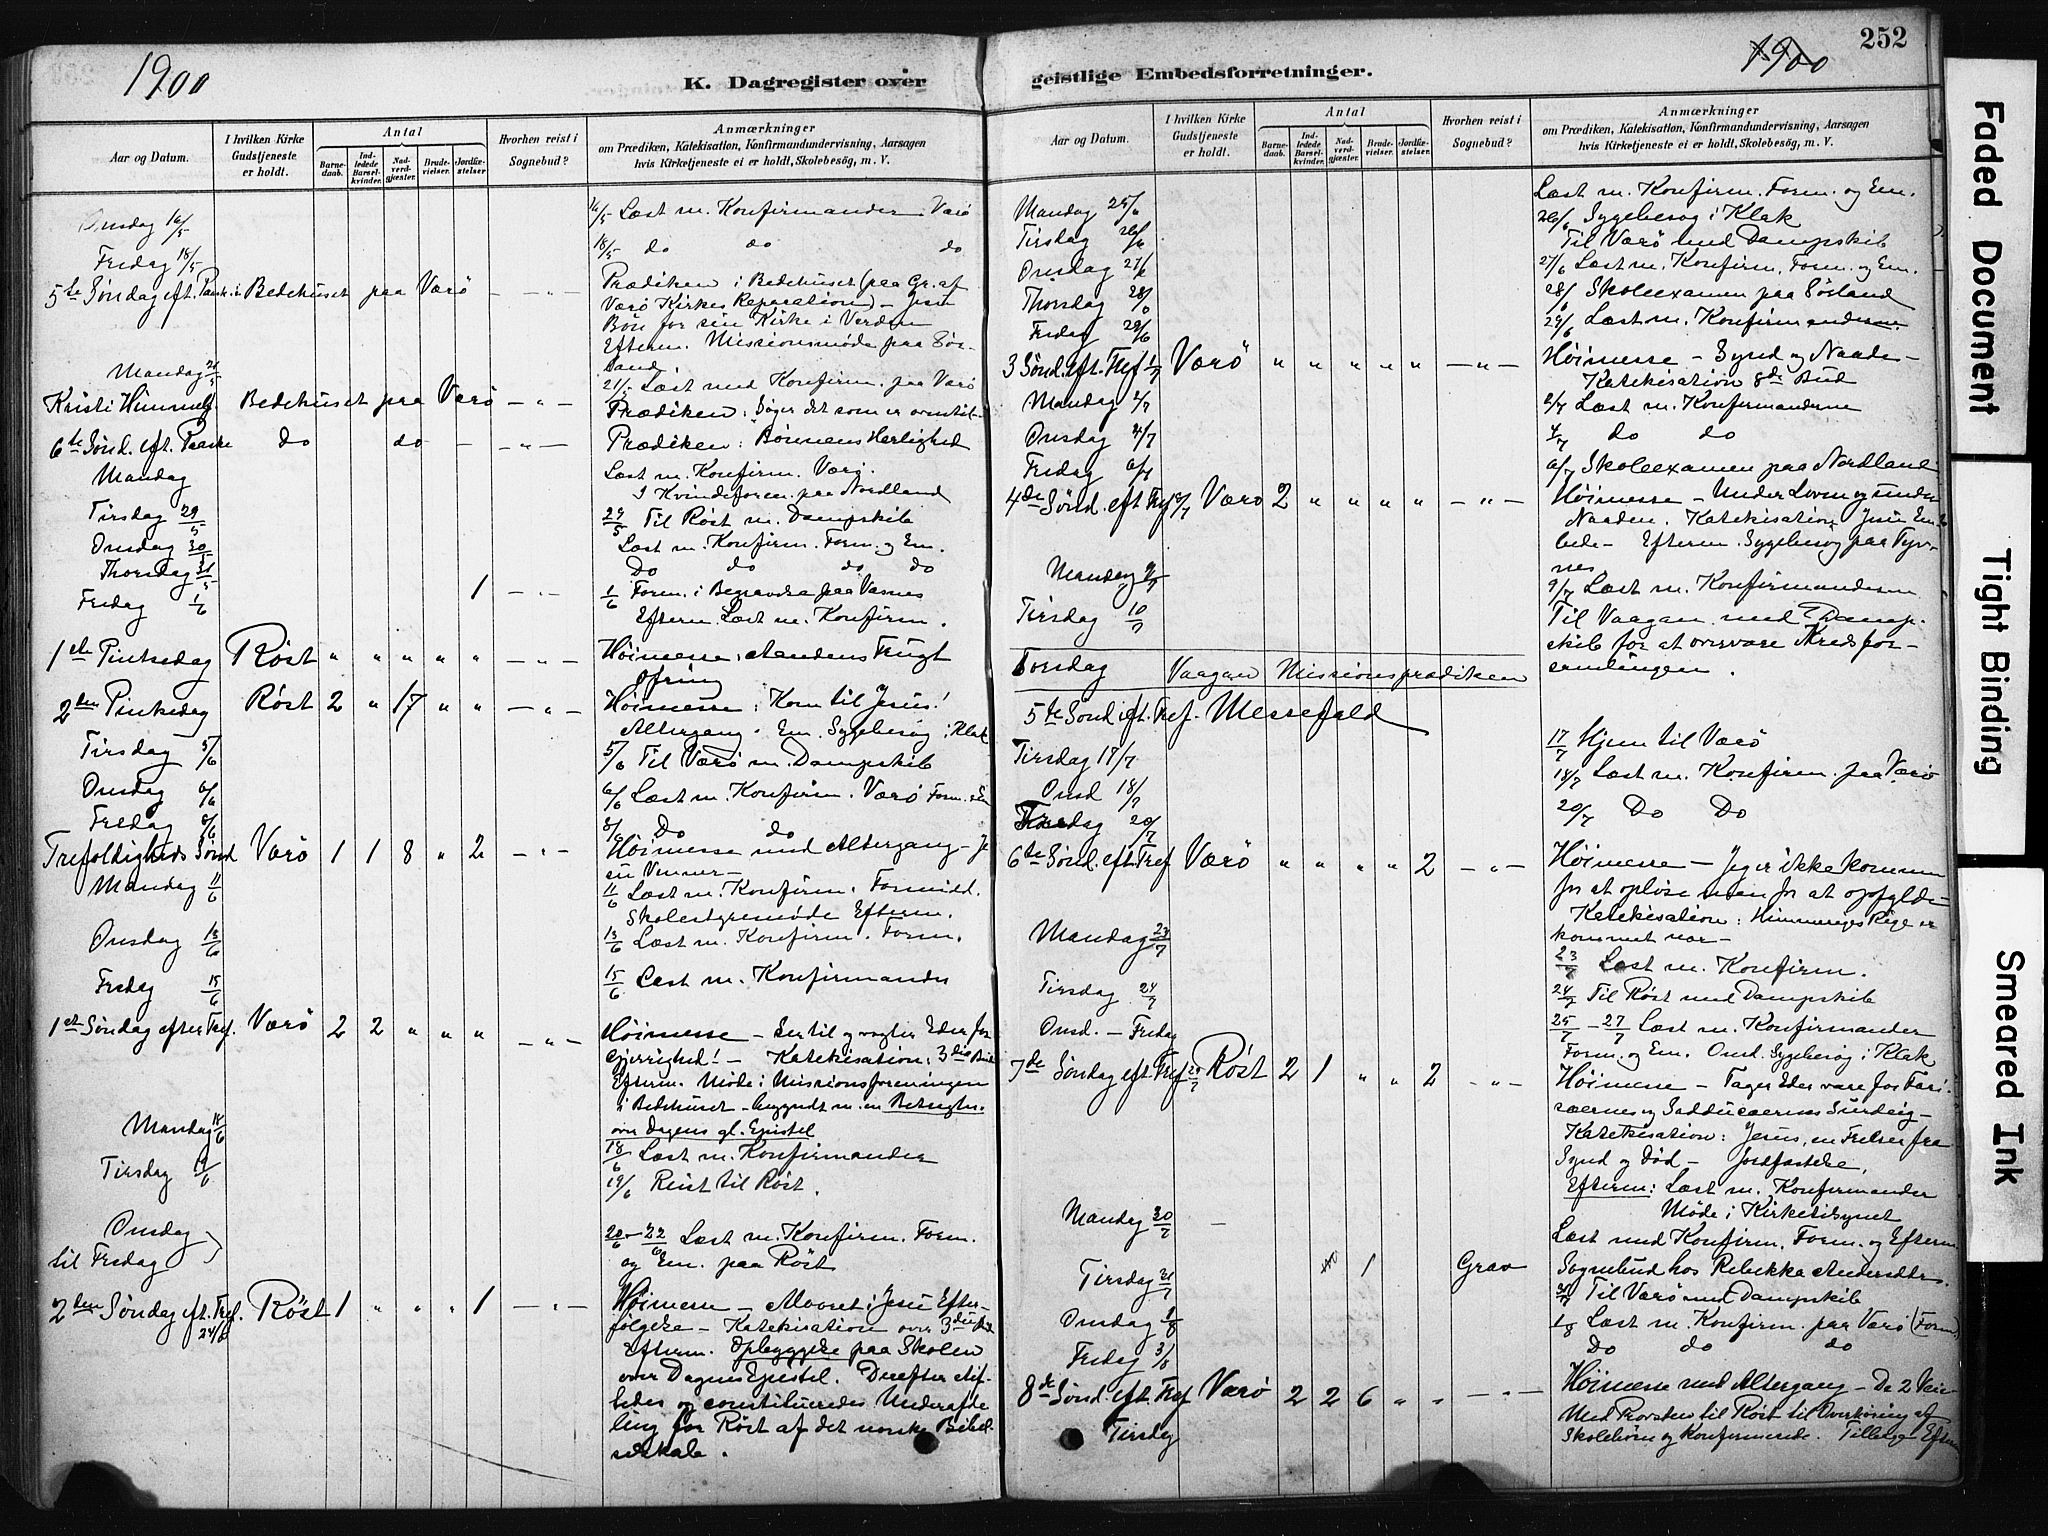 1900
K. Dagregister over
Aar og Datum.
I hvilken Kirke Gudstjeneste er holdt.
Antal
Barne-daab.
Ind-ledede Barsel-kvinder.
Nad-verd-gjæster.
Brude-vielser.
Jordfæ-stelser
Hvorhen reist i Sognebud?
Anmærkninger
om Prædiken, Katekisation, Konfirmandundervisning, Aarsagen
hvis Kirketjeneste ei er holdt, Skolebesög, m. V.
Onsdag 16/5 16/5 Læst m. Konfirmander Værö
Fredag 18/5 18/5 do do do
5te Søndag eft. Paaske Bedehuset paa Værö — " — Prædiken i Bedehuset (paa Gr. af
Værö Kirkes Reparation) – Jesu
Bön for sin Kirke i Verden
Efterm. Missionsmøde paa Sör-
land.
Mandag 21/5 21/5 Læst med Konfirm. paa Værö
Kristi Himmelf. Bedehuset paa Værö — " — Prædiken: Søger det som er oventil
6te Sønd. eft. Paaske do do — — " — Prædiken: Bønnens Herlighed
Mandag Læst m. Konfirm. Værö.
I Kvindeforen. paa Nordland
Tirsdag 29/5 29/5 Til Röst m. Dampskib
Onsdag 30/5 Læst m. Konfirm. Form. og Em.
Thorsdag 31/5 Do do do do
Fredag 1/6 1 — " — 1/6 Form. i Begravelse paa Væsnes
Efterm. Læst m. Konfirm.
1ste Pintsedag Röst " " " " " — " — Höimesse: Aandens Frugt
Ofring
2den Pintsedag Röst 2 " 17 " " — " — Höimesse: Kom til Jesus!
Altergang. Em. Sygebesøg i Klak
Tirsdag 5/6 5/6 Til Værö m. Dampskib
Onsdag 6/6 6/6 Læst m. Konfirm. Værö Form. & Em
Fredag 8/6 8/6 Do do
Trefoldigheds Sønd Værö 1 1 8 " 2 — " — Höimesse med Altergang – Je-
su Venner –
Mandag 11/6 11/6 Læst m. Konfirm. Formidd.
Skolestyremøde Efterm.
Onsdag 13/6 13/6 Læst m. Konfirm. Form.
Fredag 15/6 15/6 Læst m. Konfirmander
1ste Søndag efter Tref. Værö 2 2 " " " — " — Höimesse – Ser til og vogter Eder for
Gjerrighed! – Katekisation: 3die Bud
Efterm. Møde i Missionsforeningen
i Bedehuset – begyndt m. en Betragtn.
over Dagens gl. Epistel
Mandag 18/6 18/6 Læst m. Konfirmander
Tirsdag 19/6 19/6 Reist til Röst.
Onsdag
til Fredag 20/6 – 22/6 Læst m. Konfirm. Form.
og Em. paa Röst
2den Søndag eft. Tref. 24/6 Röst 1 " " " 1 — " — Höimesse – Alvoret i Jesu Efter-
følgelse – Katekisation over 3die Bud
Efterm. Opbyggelse paa Skolen
over Dagens Epistel. Derefter
og constitueredes Underafde
ling for Röst af det norske Bibel-
selskab.
252
1900
geistlige Embedsforretninger.
Aar og Datum.
I hvilken Kirke Gudstjeneste er holdt.
Antal
Barne-daab.
Ind-ledede Barsel-kvinder.
Nad-verd-gjæster.
Brude-vielser.
Jordfæ-stelser
Hvorhen reist i Sognebud?
Anmærkninger
om Prædiken, Katekisation, Konfirmandundervisning, Aarsagen
hvis Kirketjeneste ei er holdt, Skolebesög, m. V.
Mandag 25/6 Læst m. Konfirm. Form. og Em.
Tirsdag 26/6 26/6 Sygebesøg i Klak
Til Værö med Dampskib
Onsdag 27/6 27/6 Læst m. Konfirm. Form. og Em.
Thorsdag 28/6 28/6 Skoleexamen paa Sörland
Fredag 29/6 29/6 Læst m. Konfirmanderne
3 Sønd. eft. Tref 1/7 Værö " " " " " — " — Höimesse – Synd og Naade –
Katekisation 8de Bud
Mandag 2/7 2/7 Læst m. Konfirmanderne
Onsdag 4/7 4/7 do do
Fredag 6/7 6/7 Skoleexamen paa Nordland
4de Sønd. eft Tref 8/7 Værö 2 " " " " — " — Höimesse – Under Loven og under
Naaden. Katekisation Jesu Em-
bede – Efterm. Sygebesøg paa Tyv-
nes
Mandag 9/7 9/7 Læst m. Konfirmanderne
Tirsdag 10/7 Til Vaagan med Damp-
skib for at overvære Kredsfor-
samlingen.
Torsdag Vaagan Missionsprædiken
5te Sønd. eft. Tref. Messefald
Tirsdag 17/7 17/7 Hjem til Værö
Onsd 18/7 18/7 Læst m. Konfirm. paa Værö
Fredag 20/7 20/7 Do Do
6te Sønd. eft. Tref Værö " " " " 2 — " — Höimesse – Jeg er ikke kommen
for at opløse men for at opfylde –
Katekisation: Himmeriges Rige er
kommet nær –
Mandag 23/7 23/7 Læst m. Konfirm.
Tirsdag 24/7 24/7 Til Röst med Dampskib
Onsd. – Fredag 25/7 – 27/7 Læst m. Konfirmander
Form. og Em. Onsd. Sygebesøg i Klak
7de Søndag eft. Tref 29/7 Röst 2 1 " " 2 — " — Höimesse – Tager Eder vare for Fari-
sæernes og Sadducæernes Surdeig –
Katekisation: Jesus, en Frelser fra
Synd og Död – Jordfæstelse.
Efterm: Læst m. Konfirmander
Møde i Kirketilsynet
Mandag 30/7 – Læst med Konfirm. Form. og Efterm
Tirsdag 31/7 1 Grav Sognebud hos Rebekka Andersdtr.
31/7 Til Værö med Dampskib
Onsdag 1/8 1/8 Læst m. Konfirm. paa Værö (Form)
Fredag 3/8 Do do do
8de Sønd. eft Tref Værö 2 2 6 " " — " — Höimesse med Altergang – De 2 Veie
Tirsdg Med Provsten til Röst til Overhöring af
Skolebörn og Konfirmerede. Tilbage Efterm
Faded Document
Tight Binding
Smeared Ink